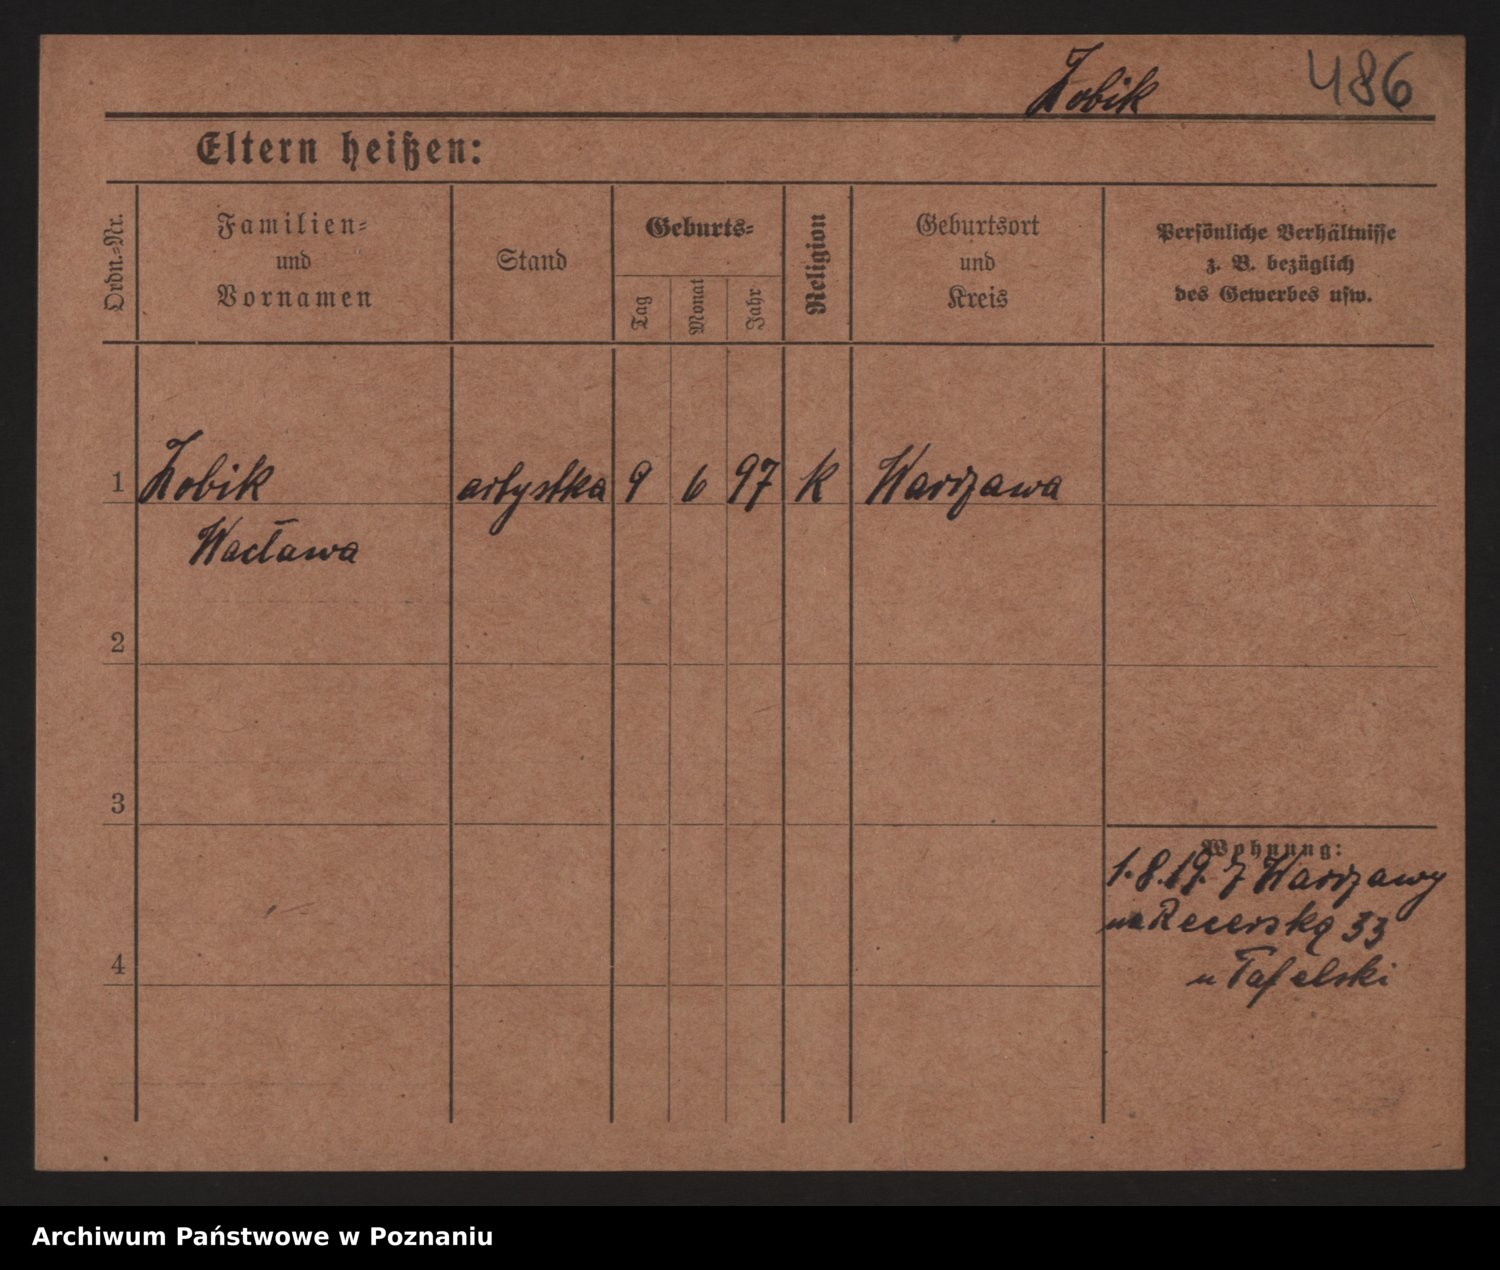 Zobik 486
Eltern heißen:
Ordn.-Nr.
Familien-
und
Vornamen
Stand
Geburts-
Tag
Monat
Jahr
Religion
Geburtsort
und
Kreis
Persönliche Verhältnisse
z. B. bezüglich
des Gewerbes usw.
1 Zobik artystka 9 6 97 k Warszawa
Wacława
2
3
4
Wohnung:
1.8.19. z Warszawy
na 33
u Tafelski
Archiwum Państwowe w Poznaniu